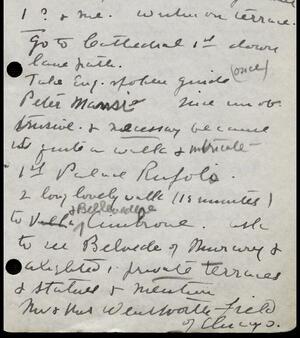 1 ? & me. on terrace.
Go to Cathedral 1st down
lane path.
Take Eng. spoken guide (once)
Peter Mansi nice unob
trusive. & necessary because
its quite a walk & intricate
1st Palace Rufolo.
2 long lovely walk (15 minutes)
to Villa Cimbrone. ask
& Bellevedere
to see Belvede of Mercury &
private terraces
& statues & mention
Mr & Mrs Wentworth Field
of Chicago.